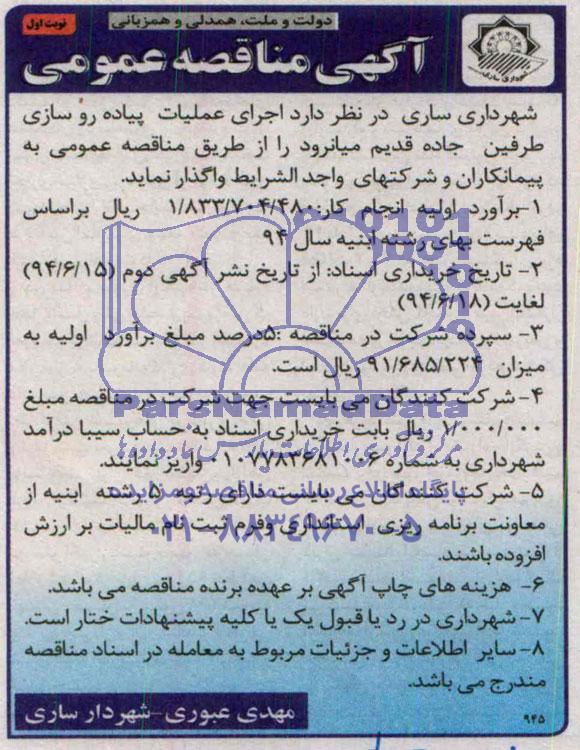 دولت و ملت، همدلی و همزبانی
نوبت اول
آگهی مناقصه عمومی
شهرداری ساری
شهرداری ساری در نظر دارد اجرای عملیات پیاده رو سازی
طرفین جاده قدیم میانرود را از طریق مناقصه عمومی به
پیمانکاران و شرکتهای واجد الشرایط واگذار نماید.
۱-برآورد اولیه انجام کار:۱/۸۳۳/۷۰۴/۴۸۰ ریال براساس
فهرست بهای رشته ابنیه سال ۹۴
۲- تاریخ خریداری اسناد: از تاریخ نشر آگهی دوم (۹۴/۶/۱۵)
لغایت (۹۴/۶/۱۸)
۳- سپرده شرکت در مناقصه :۵درصد مبلغ برآورد اولیه به
میزان ۹۱/۶۸۵/۲۲۴ ریال است.
۴- شرکت کنندگان می بایست جهت شرکت در مناقصه مبلغ
۱/۰۰۰/۰۰۰ ریال بابت خریداری اسناد به حساب سیبا درآمد
شهرداری به شماره واریز نمایند.
۵- شرکت کنندگان می بایست دارای رتبه ۵ رشته ابنیه از
معاونت برنامه ریزی استانداری وفرم ثبت نام مالیات بر ارزش
افزوده باشند.
۶- هزینه های چاپ آگهی بر عهده برنده مناقصه می باشد.
۷- شهرداری در رد یا قبول یک یا کلیه پیشنهادات ختار است.
۸- سایر اطلاعات و جزئیات مربوط به معامله در اسناد مناقصه
مندرج می باشد.
مهدی عبوری-شهردار ساری
۹۴۵
ParsNamadData
مرکز فرآوری اطلاعات پارس نماد داده ها
پایگاه اطلاع رسانی مناقصه و مزایده
۰۲۱-۸۸۳۴۹۶۷۰-۵